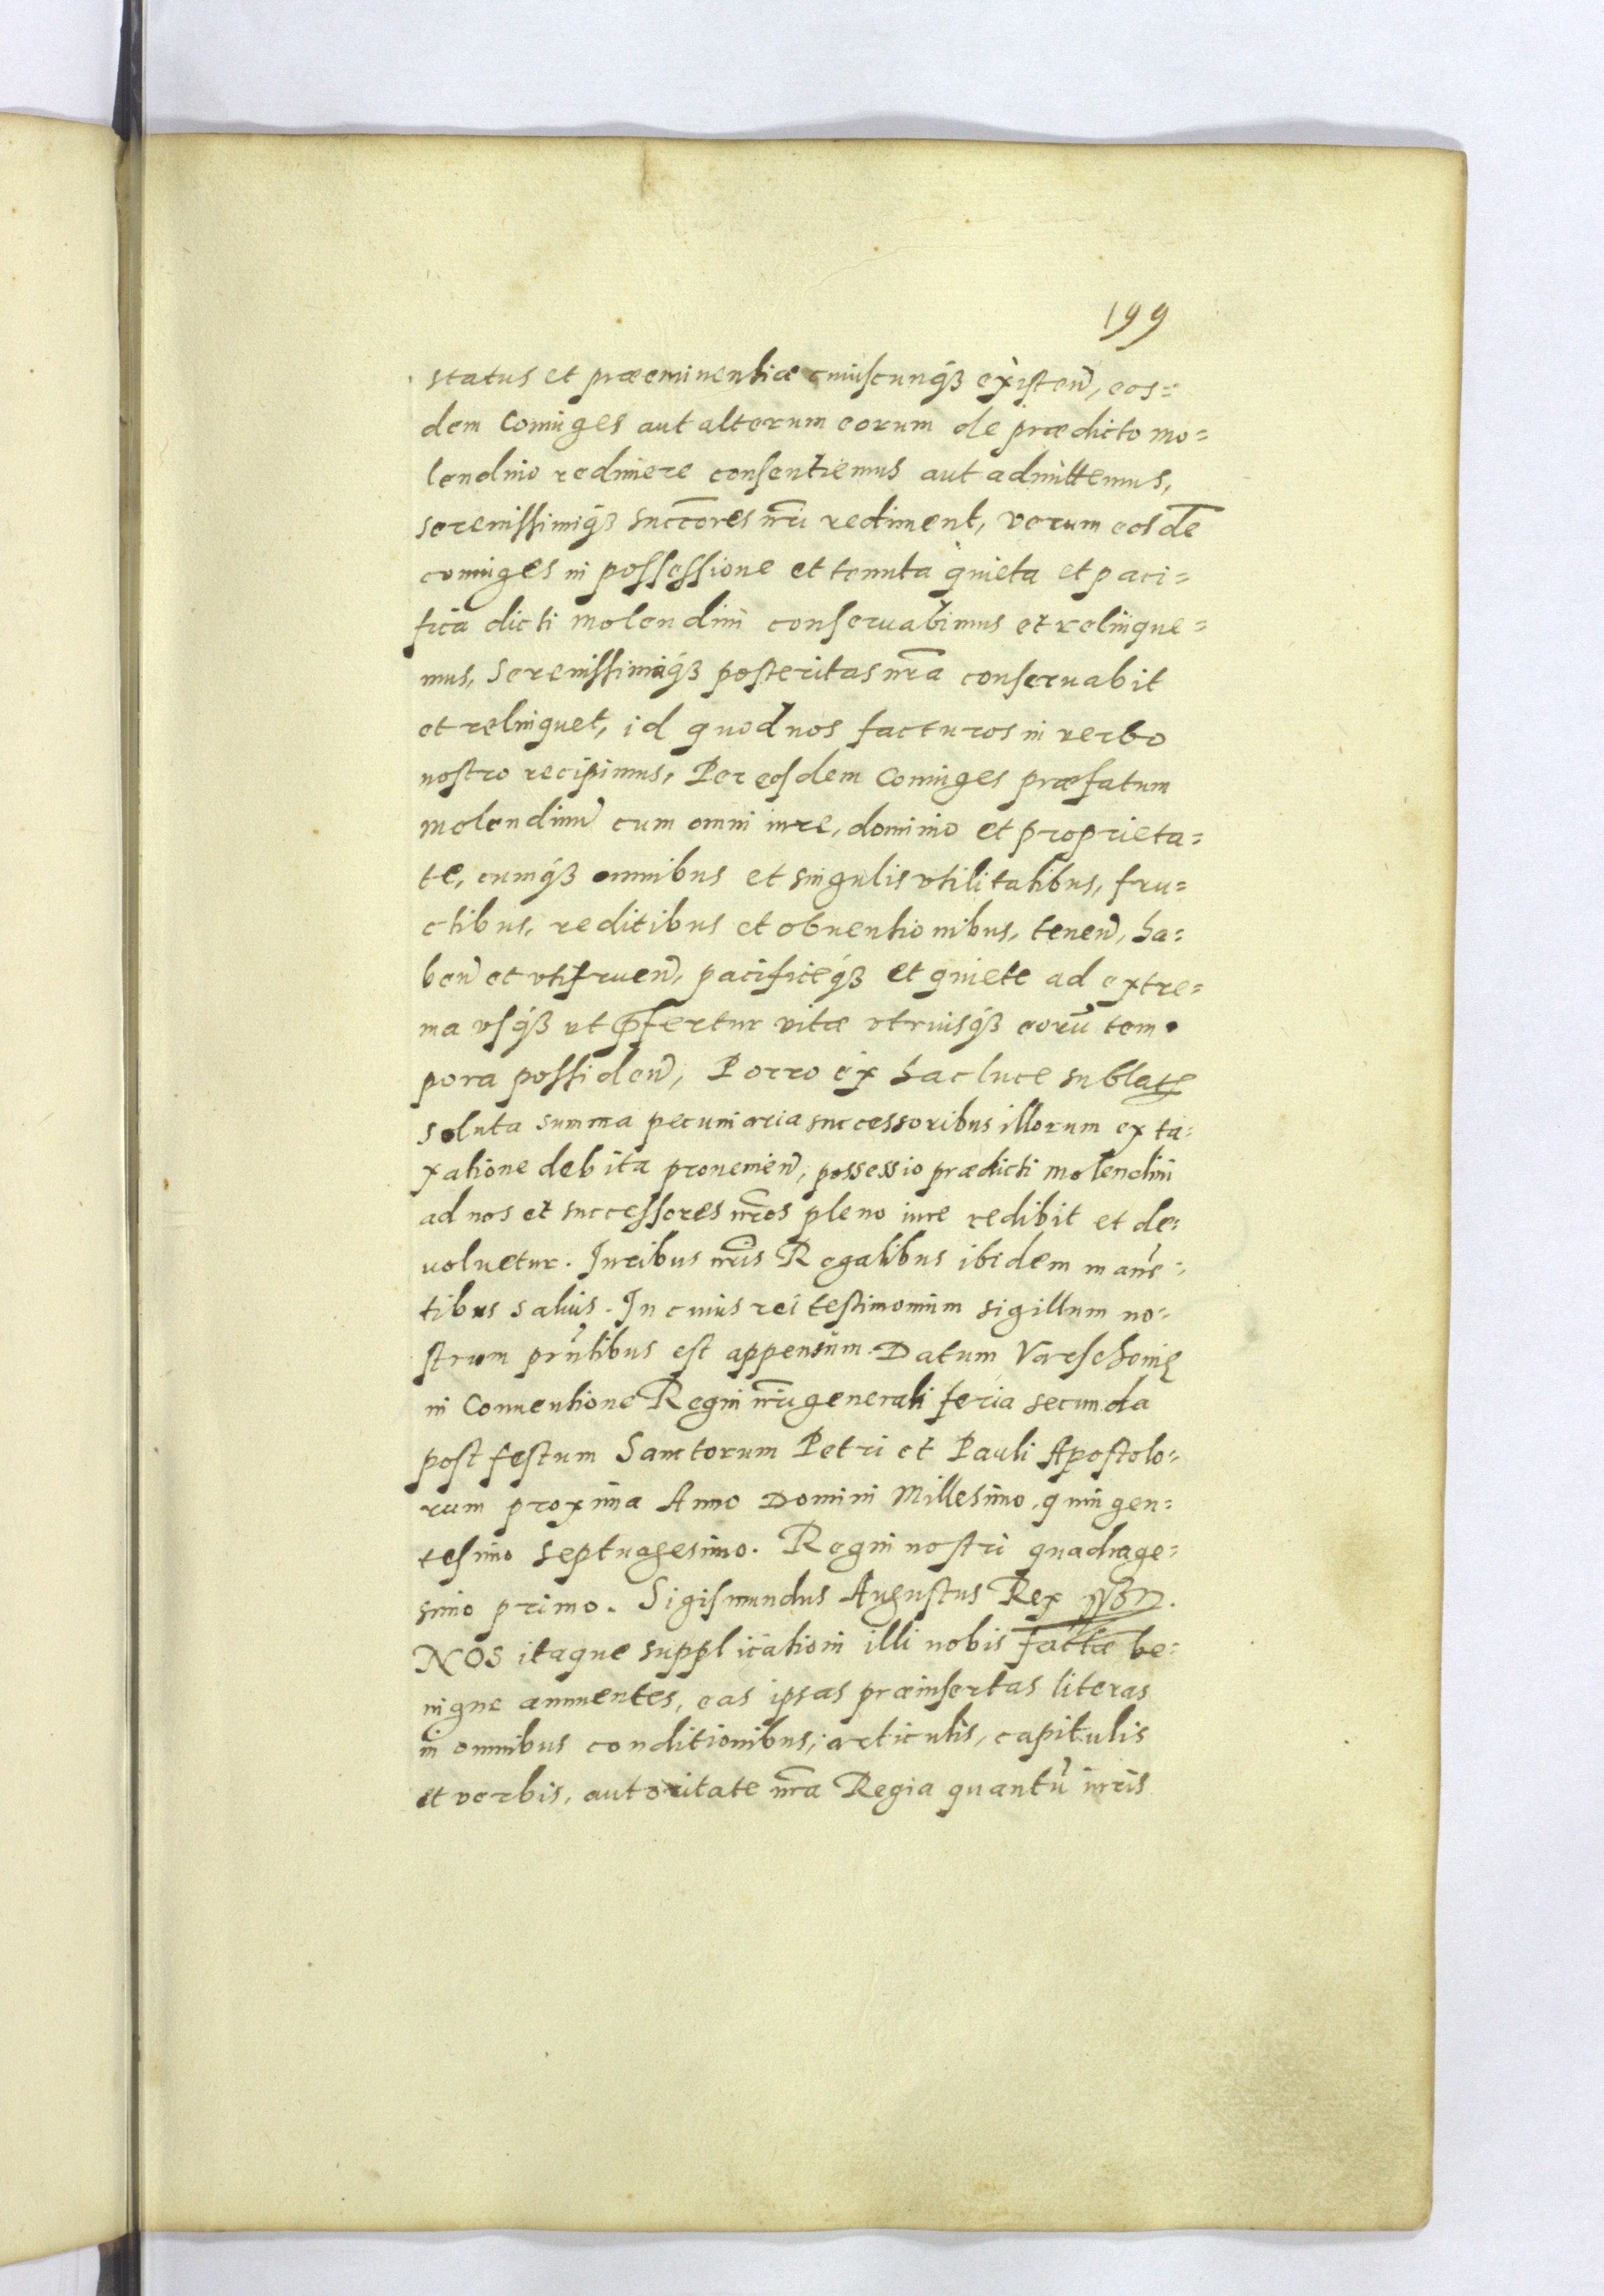 199
status et præeminentiæ cuiuscunq́ȝ existen̄, eos=
dem Coniuges aut alterum eorum de prædicto mo=
lendino redimere consentiemus aut admittemus,
serenissimiq́ȝ succ̄ores nr̄i rediment, verum eosdē
coniuges in possessione et tenuta quieta et paci=
fica dicti molendini conseruabimus et relinque=
mus, Serenissimaq́ȝ posteritas nr̄a conseruabit
et relinquet, id quod nos facturos in verbo
nostro recipimus, Per eosdem Coniuges præfatum
molendinū cum omni iure, dominio et proprieta=
te, cumq́ȝ omnibus et singulis vtilitatibus, fru=
ctibus, reditibus et obuentionibus, tenen̄, ha=
ben̄ et vtifruen̄, pacificeq́ȝ et quiete ad extre=
ma vsq́ȝ vt p̄fertur vitæ vtriusq́ȝ eorū tem
pora possiden̄, Porro ex hac luce sublatę
soluta summa pecuniaria successoribus illorum ex ta=
xatione debita prouenien̄, possessio prædicti molendini
ad nos et successores nr̄os pleno iure redibit et de=
uoluetur. Iuribus nr̄is Regalibus ibidem manē=
tibus saluis. In cuius rei testimonium sigillum no=
strum prn̄tibus est appensum. Datum Varschouię
in Conuentione Regni nr̄i generali feria secunda
post festum Sanctorum Petri et Pauli Apostolo=
rum proxima Anno Domini Millesimo, quingen=
tesimo septuagesimo. Regni nostri quadrage=
simo primo. Sigismundus Augustus Rex
NOS itaque supplicationi illi nobis factæ be=
nigne annuentes, eas ipsas præinsertas literas
in omnibus conditionibus, articulis, capitulis
et verbis, autoritate nr̄a Regia quantū iuris